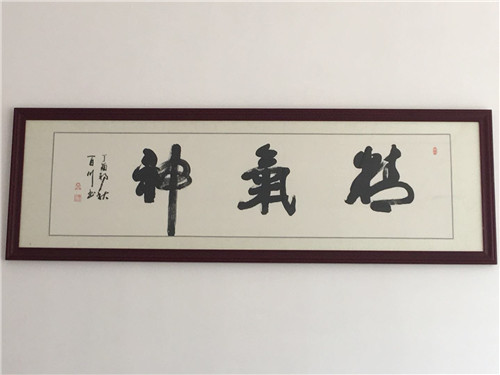 精氣神
丁酉初秋
百川书